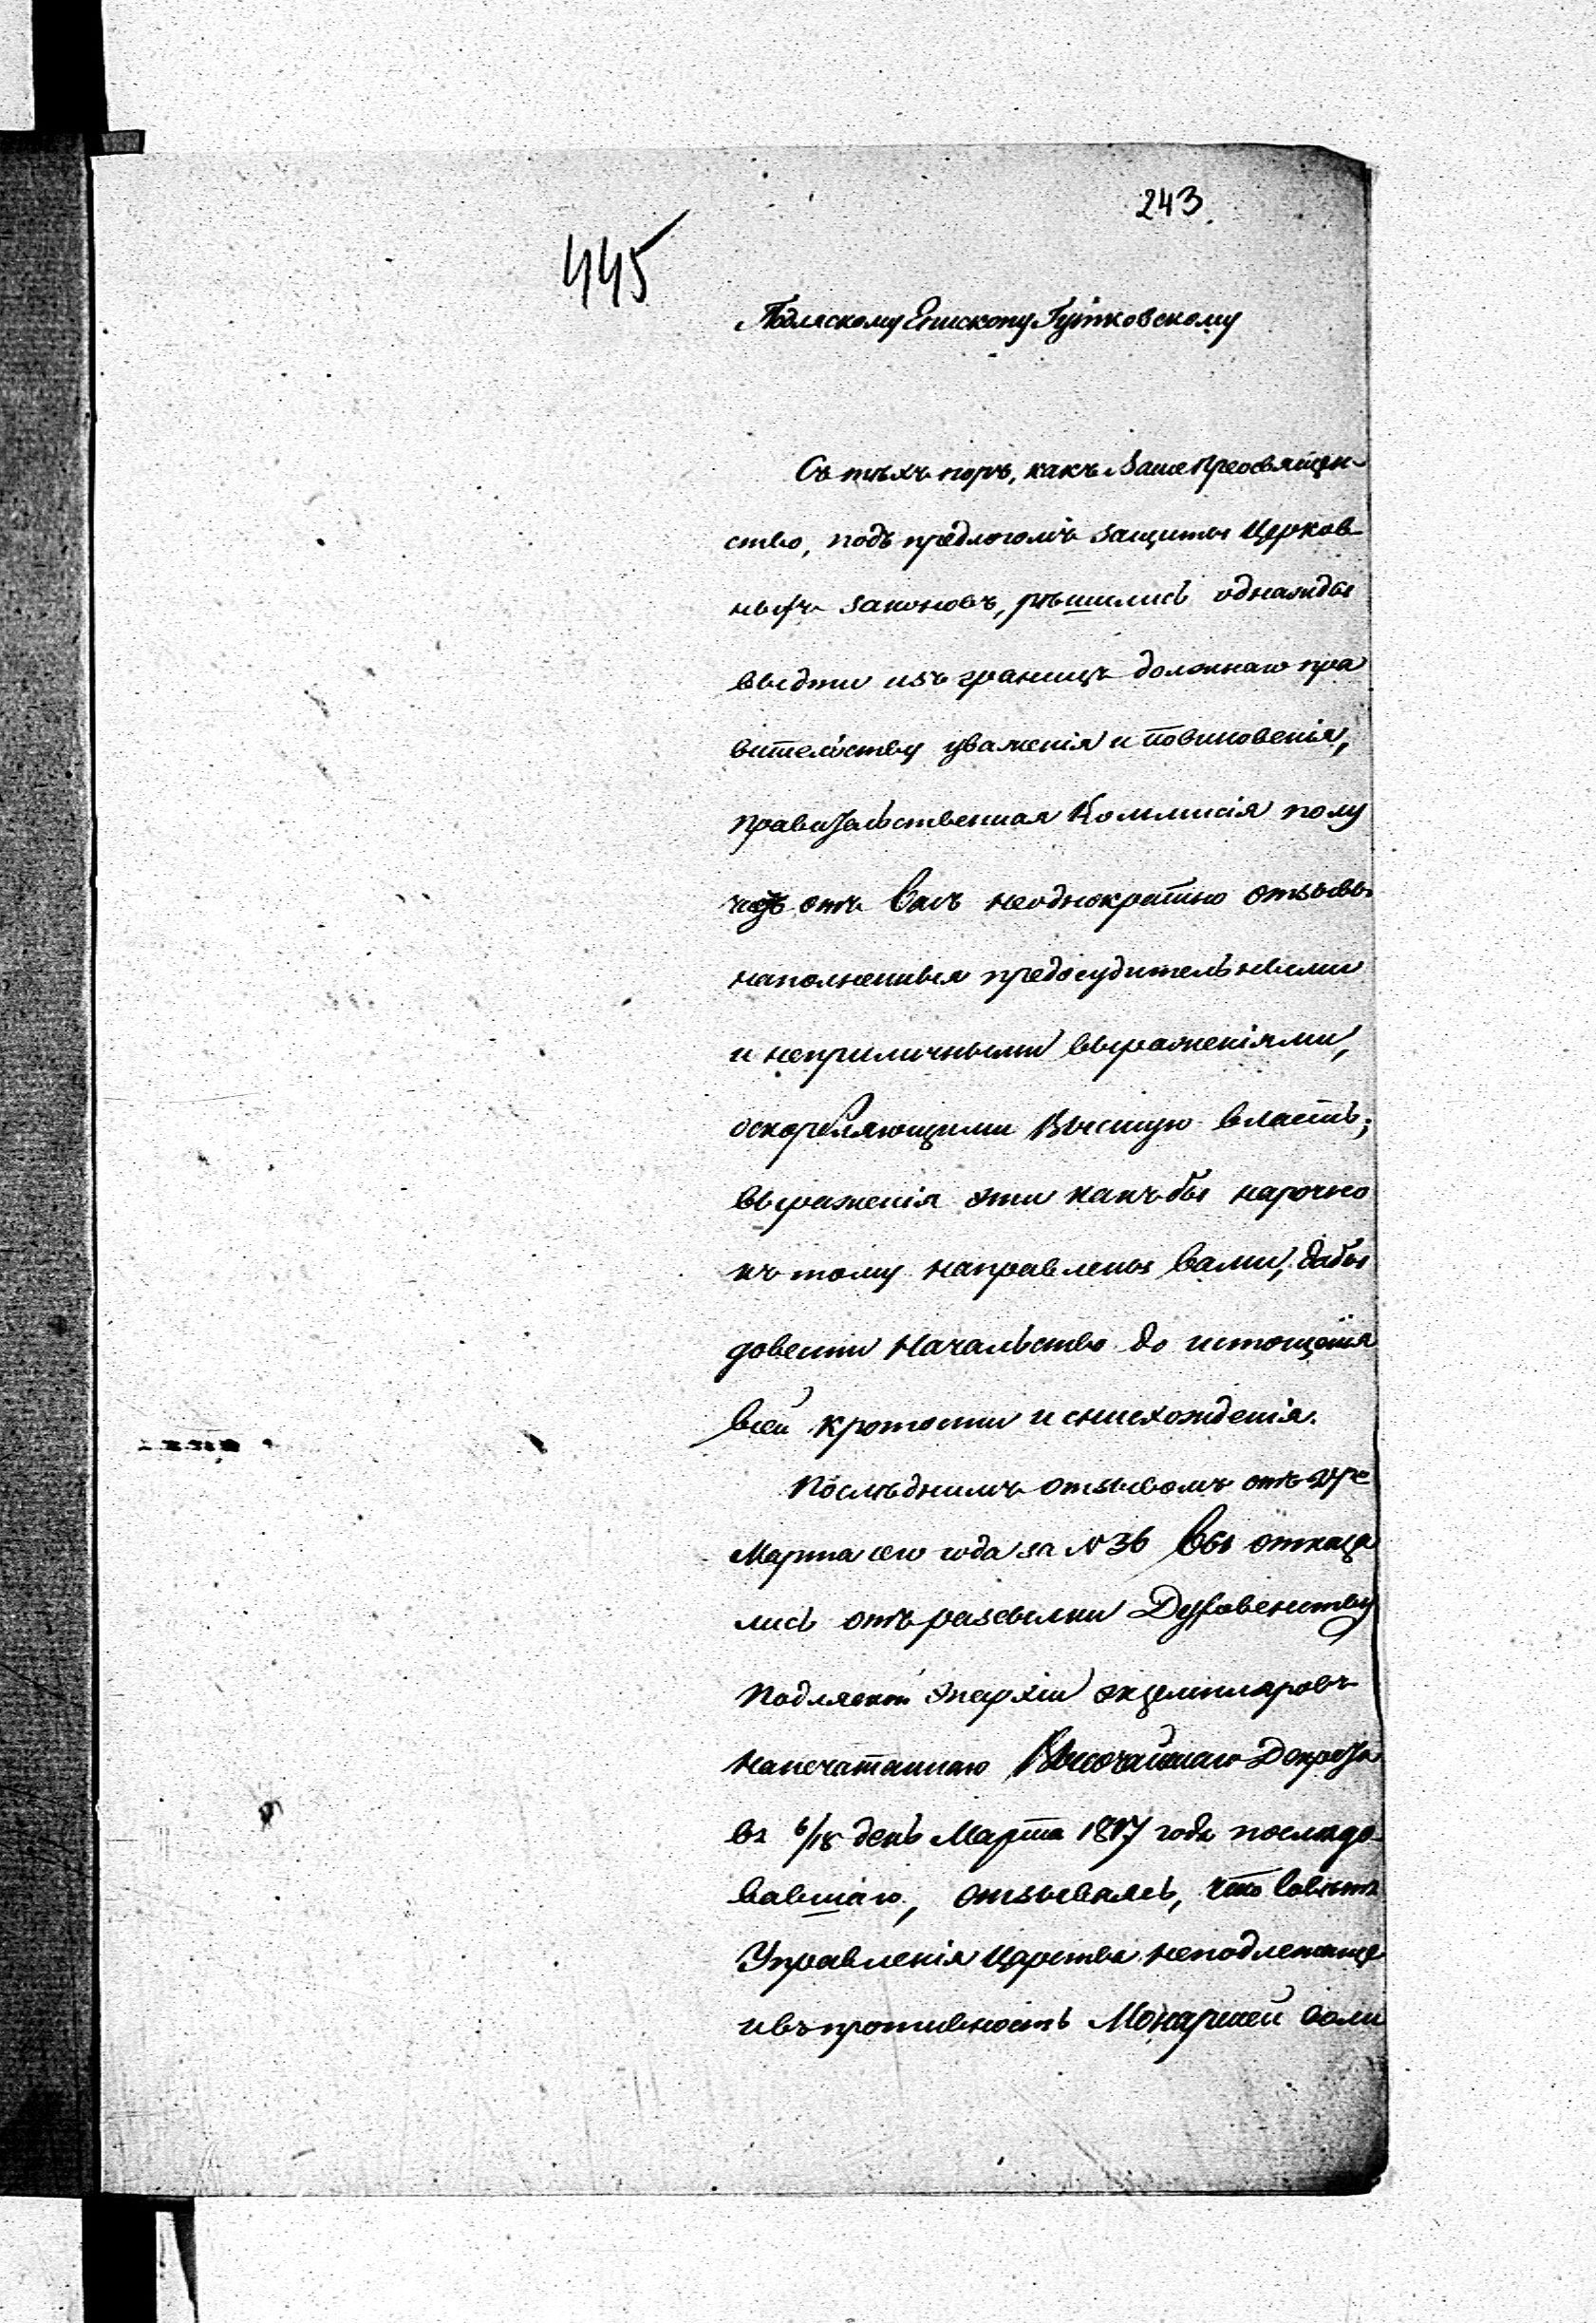 243
445
Подляскому Епископу Гутковскому
Съ тѣхъ поръ, какъ Ваше Преосвящен-
ство, подъ предлогомъ защиты Церков-
ныхъ законовъ, рѣшились однажды
выдти изъ границъ должнаго пра
вительству уваженія и повиновенія,
Правительственная Коммисія полу
чаетъ отъ Васъ неоднократно отзывы
наполненныя предосудительными
и неприличными выраженіями,
оскорбляющими Высшую власть;
выраженія эти какъ бы нарочно
къ тому направлены вами, дабы
довести Начальство до истощенія
всей кротости и снисхожденія.
Послѣднимъ отзывомъ отъ
Марта сего года за N 36 Вы отказа
лись отъ разсылки Духовенству
Подляской Эпархіи экземпляровъ
напечатаннаго Высочайшаго Декрета
въ 6/18 день Марта 1817 года послѣдо-
вавшаго, отзываясь, что Совѣтъ
Управленія Царства неподлежаще
и въ противность Монаршей воли